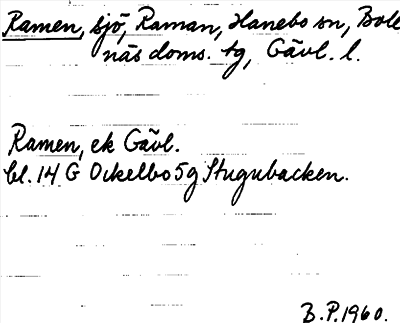 Ramen, sjö, Raman, Hanebo sn, Bole
näs doms. tg, Gävl. l.
Ramen, ek Gävl.
bl. 14 G Ockelbo 5g Stugubacken.
B.P.1960.